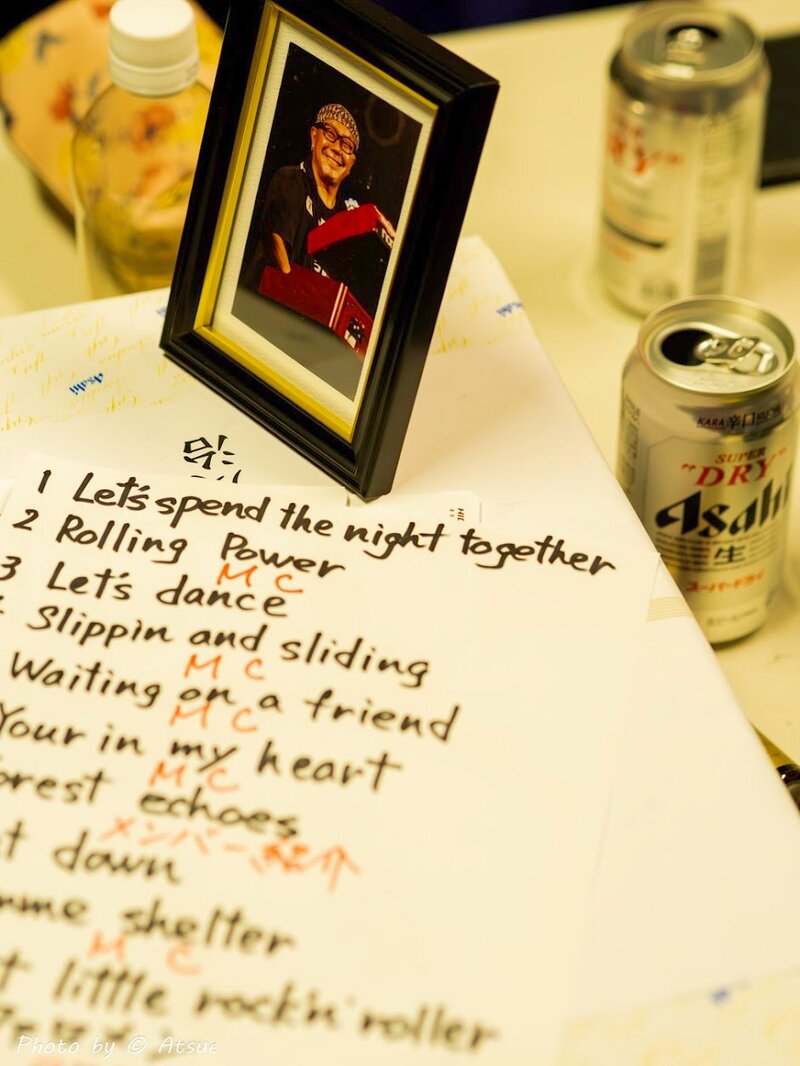 1 Let's spend the night together
2 Rolling Power
M C
3 Let's dance
Slippin and sliding
M C
Waiting on a friend
M C
Your in my heart
M C
orest echoes
メンバー紹介
t down
mme shelter
M C
t little rockin' roller
Asahi
Asahi
KARA 辛口 KUCHI
SUPER
"DRY"
Asahi
生
スーパードライ
DRY"
Photo by © Atsue